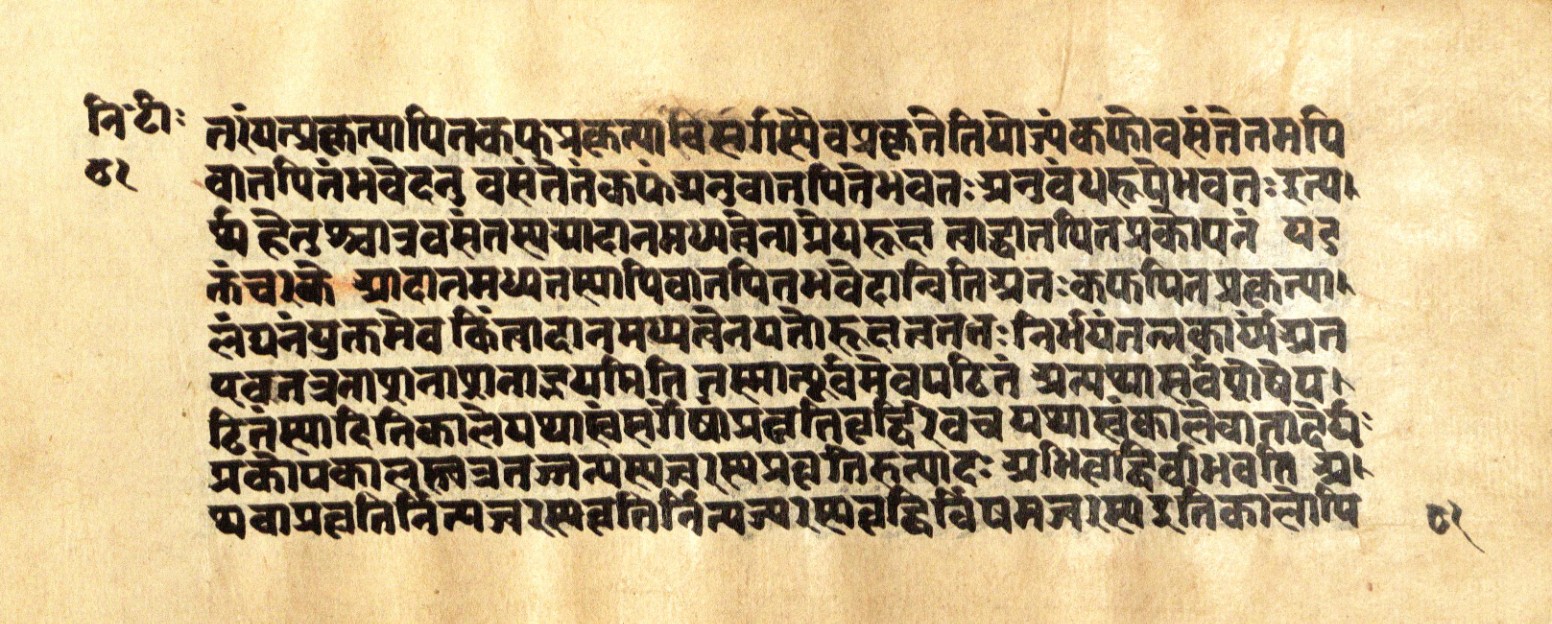 नि॰टी॰
८२
तरंयत्प्रकृत्यापित्तकफप्रकृत्याविसर्गस्यैवप्रकृतेतियोज्यंकफोवसंतेतमपि
वातपित्तंभवेदनु वसंतेतंकफंअनुवातपित्तेभवतः अनुबंधरूपेभवतः इत्य
र्थः हेतुश्चात्रवसंतस्यआदानमध्यत्वेनाग्नेयरूक्षत्वाद्वातपित्तप्रकोपनं यदु
क्तंचरके आदानमध्येतस्यापिवातपित्तंभवेदन्विति अतः कफपित्तप्रकृत्या
लंघनंयुक्तमेव किंत्वादानमध्यत्वेनयतोरूक्षत्वंततः निर्भयंतत्नकार्यंअत
एवनत्रनानानाद्भयमिति तस्मात्पूर्वमेवपठितं अन्यथासर्वशेषेप
ठितंस्यादितिकालेयथास्वंसर्वेषांप्रवृत्तिवृद्धिरेवच यथास्वंकालेवातादेर्यः
प्रकोपकालउक्तस्तत्रतज्जन्यस्यज्वरस्यप्रवृत्तिरुत्पादः अभिवृद्धिर्वाभवति अ
थवाप्रवृत्तिर्नित्यज्वरस्यवृत्तिर्नित्यज्वरस्यवृद्धिर्विषमज्वरस्य इतिकालोपि
८२